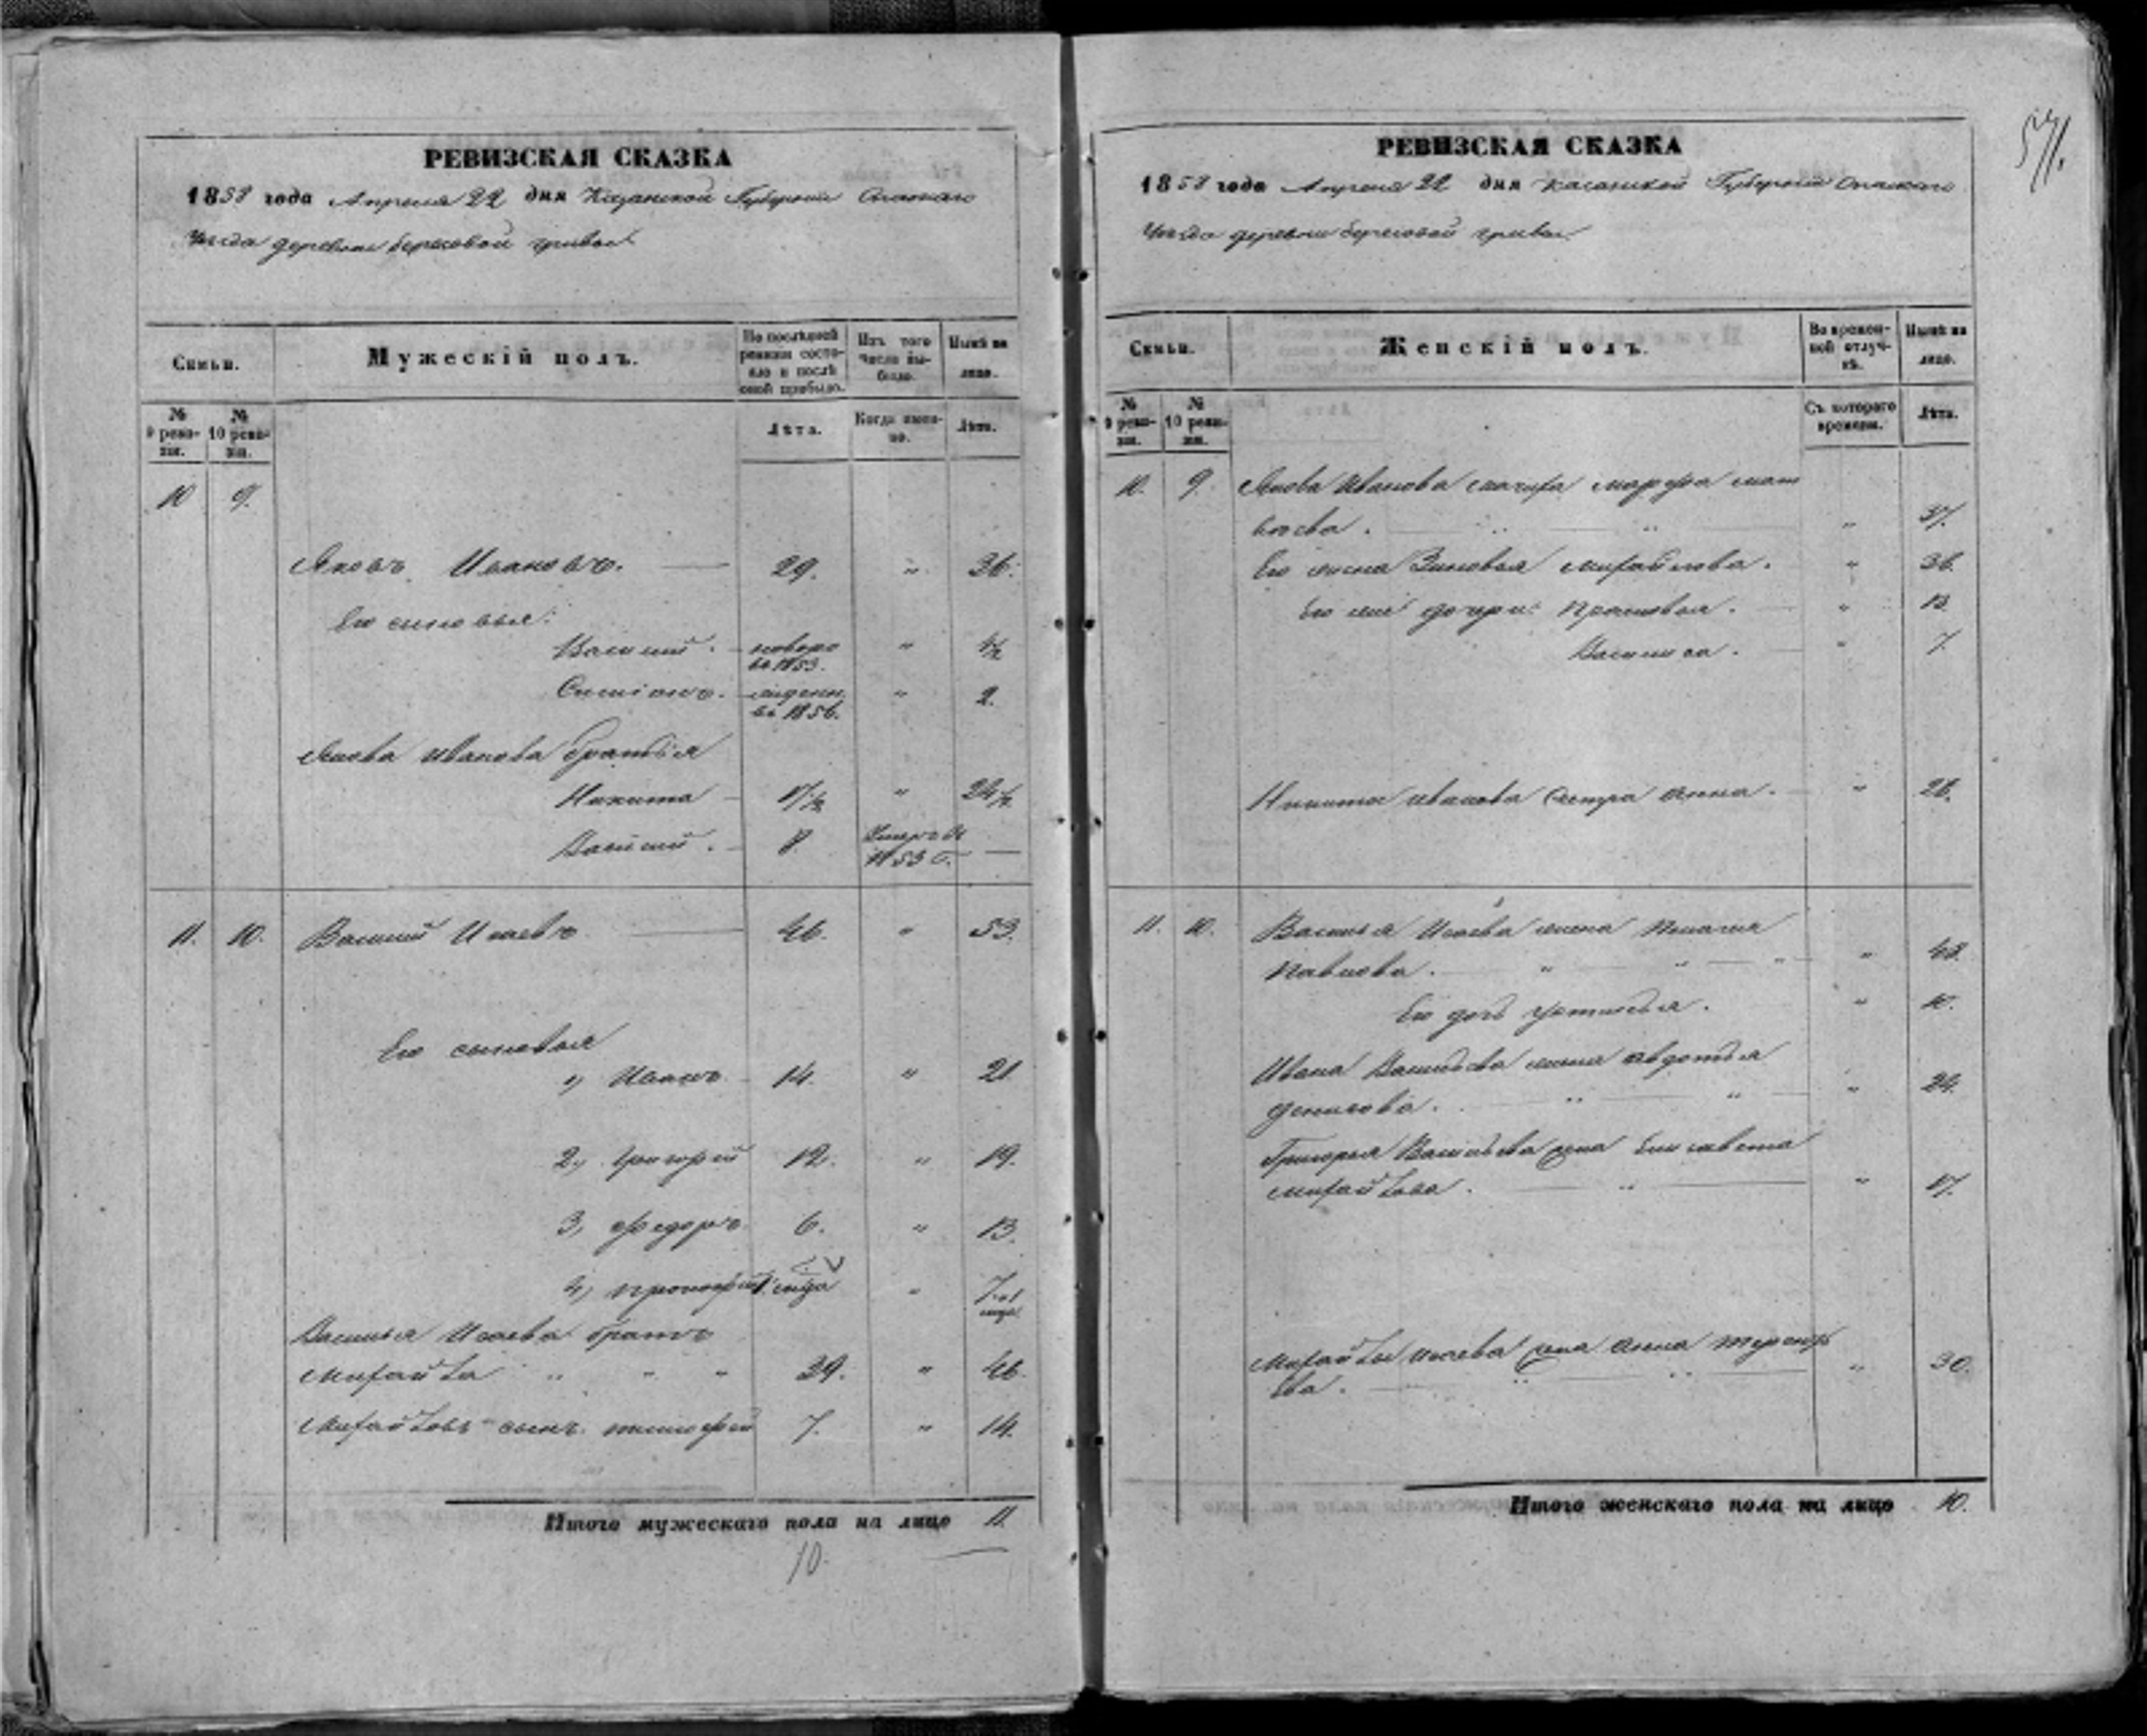 РЕВИЗСКАЯ СКАЗКА
1858 года Апреля 22 дня Казанской Губернии Спаскаго
Уезда деревни березовой гривы
Семьи.
Мужескій полъ.
По послѣдней ревизіи состояло и послѣ оной прибыло.
Изъ того числа выбыло.
Нынѣ на лицо.
№ 9 ревизіи.
№ 10 ревизіи.
Лѣта.
Когда именно.
Лѣта.
10 9.
Яковъ Ивановъ. 29. " 36.
Его сыновья:
Василий. новоро " 4½
въ 1853.
Симіонъ. жденн. " 2.
въ 1856.
Якова Иванова братья
Никита 17½ " 24½
Василий. 8. Умеръ въ
1853 г. —
11. 10. Василий Исаевъ 46. " 53.
Его сыновья
1, Иванъ 14. " 21
2, Григорий 12. " 19.
3, Федоръ 6. " 13.
4, Прокофий 1 мца " 7 и 1
мца
Василья Исаева братъ
Михайла " " " 39. " 46.
Михайловъ сынъ тимофей 7. " 14.
Итого мужескаго пола на лицо 11.
10.
РЕВИЗСКАЯ СКАЗКА
1858 года Апреля 22 дня Казанской Губернии Спаскаго
Уезда деревни березовой гривы.
57/.
Семьи.
Женскій полъ.
Во временной отлучкѣ.
Нынѣ на лицо.
№ 9 ревизіи.
№ 10 ревизіи.
Съ котораго времени.
Лѣта.
10. 9. Якова Иванова мачиха марфа мат
веева. " " " 57.
Его жена Зиновья михайлова. " 36.
Его же дочери: Прасковья. " 13.
Василиса. " 7.
Никиты иванова сестра анна. " 28.
11. 10. Василья Исаева жена Пелагия
павлова. " " " " 48.
Его дочь устинья. " 10.
Ивана Васильева жена авдотья
денисова. " " " 24.
Григорья Васильева жена Елисавета
михайлова. " " 17.
Михайлы исаева жена анна терентье
ва. " " " 30.
Итого женскаго пола на лицо 10.